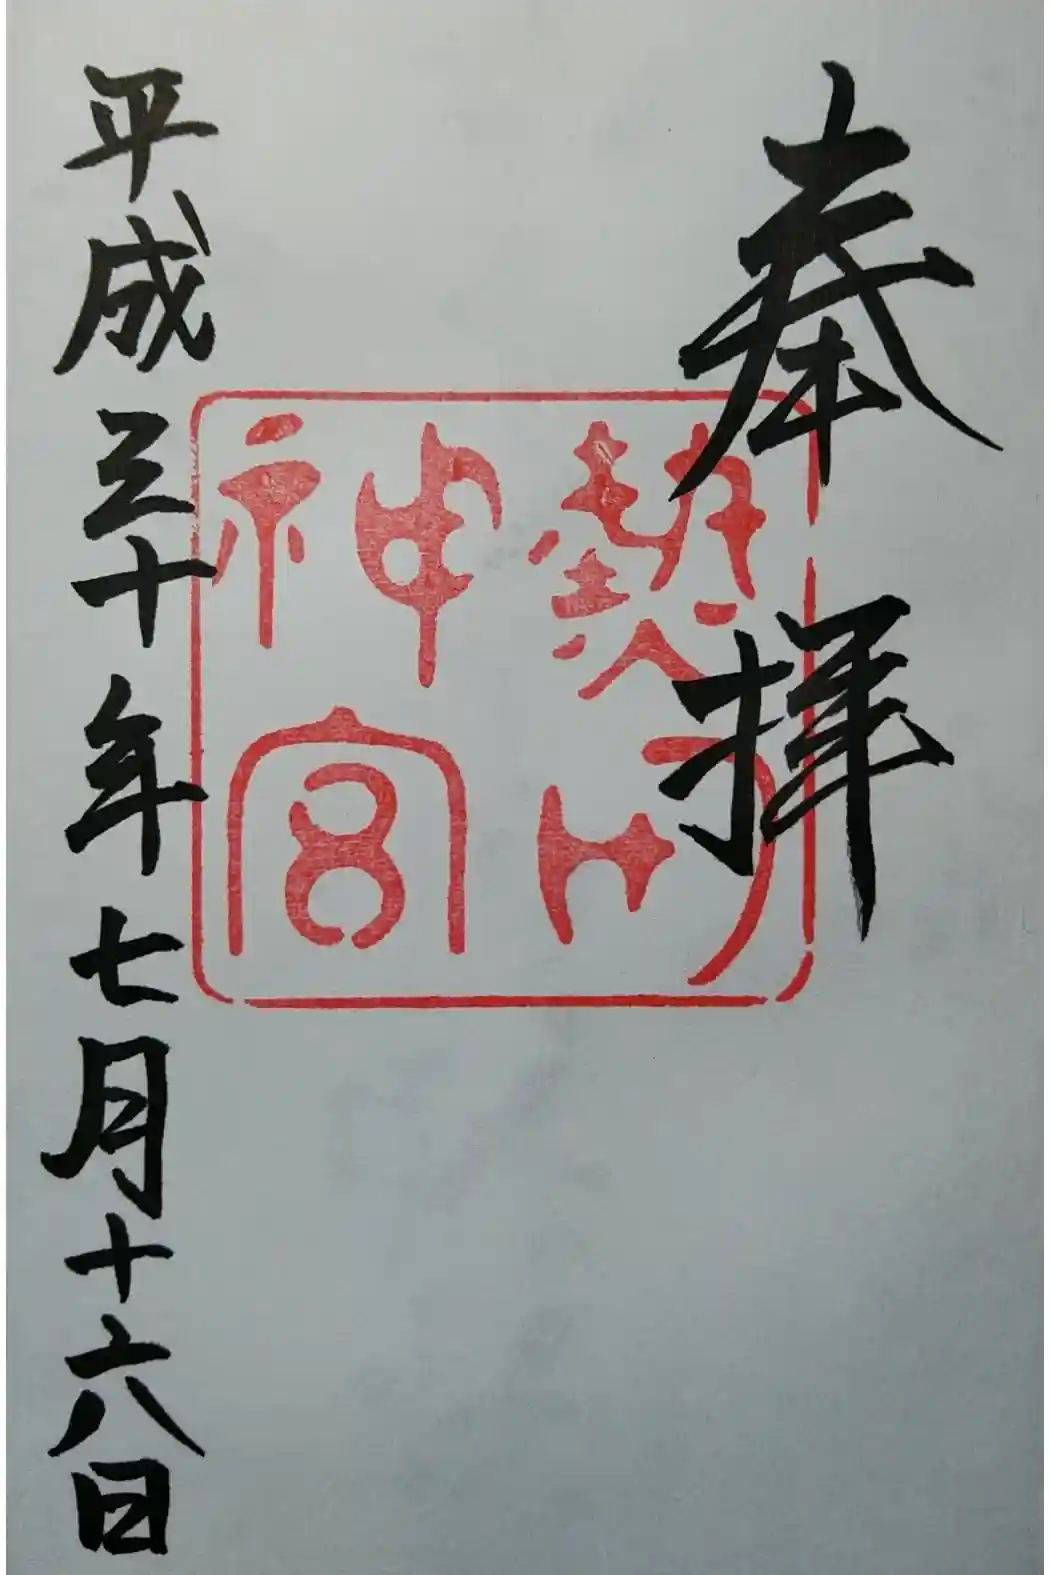 奉拝
熱田
神宮
平成三十年七月十六日